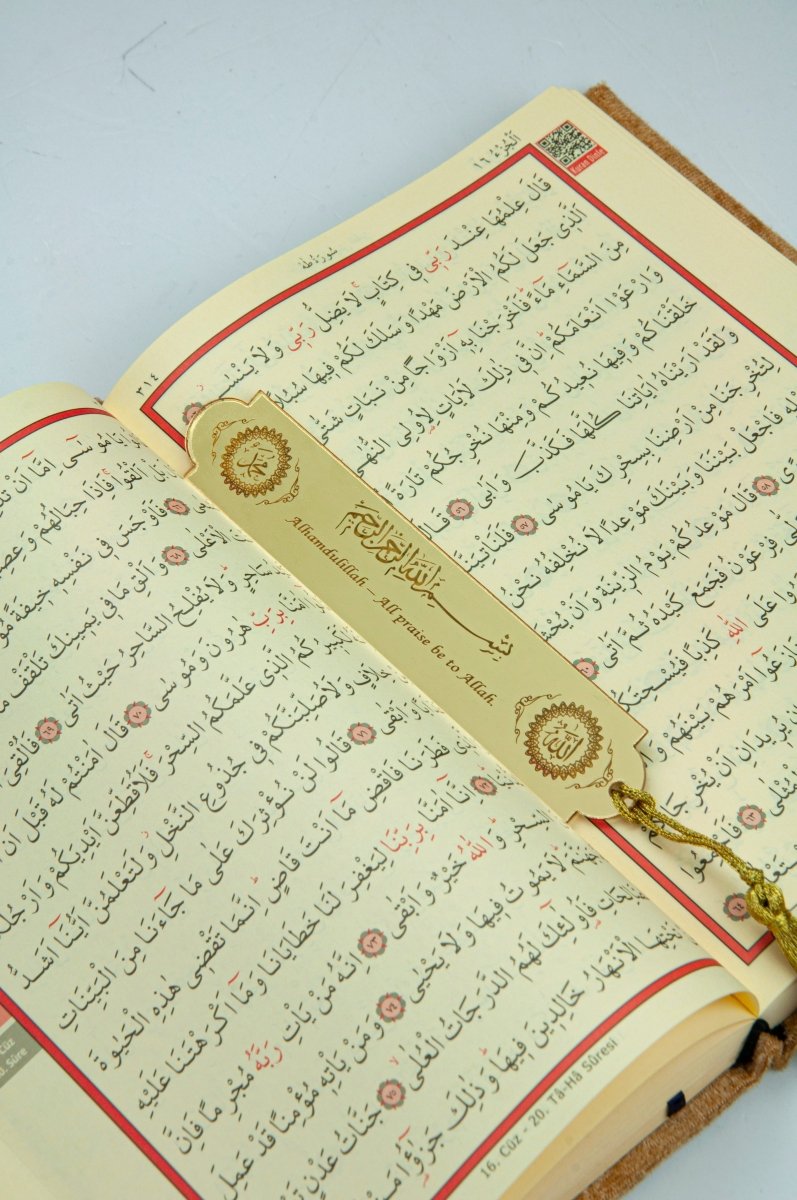 اَلْجُزْءُ ١٦
Kuran Dinle
سُورَةُ طٰهٰ
٣١٤
قَالَ عِلْمُهَا عِنْدَ رَبّ۪ي ف۪ي كِتَابٍۚ لَا يَضِلُّ رَبّ۪ي وَلَا يَنْسٰى
اَلَّذ۪ي جَعَلَ لَكُمُ الْاَرْضَ مَهْدًا وَسَلَكَ لَكُمْ ف۪يهَا سُبُلًا
مِنَ السَّمَٓاءِ مَٓاءً فَاَخْرَجْنَا بِه۪ٓ اَزْوَاجًا مِنْ نَبَاتٍ شَتّٰى
وَارْعَوْا اَنْعَامَكُمْ اِنَّ ف۪ي ذٰلِكَ لَاٰيَاتٍ لِاُو۬لِي النُّهٰى
خَلَقْنَاكُمْ وَف۪يهَا نُع۪يدُكُمْ وَمِنْهَا نُخْرِجُكُمْ تَارَةً
وَلَقَدْ اَرَيْنَاهُ اٰيَاتِنَا كُلَّهَا فَكَذَّبَ وَاَبٰى ٥٦ قَالَ
لِتُخْرِجَنَا مِنْ اَرْضِنَا بِسِحْرِكَ يَا مُوسٰى ٥٧ فَلَنَأْتِيَنَّ
فَاجْعَلْ بَيْنَنَا وَبَيْنَكَ مَوْعِدًا لَا نُخْلِفُهُ نَحْنُ
٥٨ قَالَ مَوْعِدُكُمْ يَوْمُ الزّ۪ينَةِ وَاَنْ
فِرْعَوْنُ فَجَمَعَ كَيْدَهُ ثُمَّ اَتٰى
عَلَى اللّٰهِ كَذِبًا فَيُسْحِتَكُمْ
اَمْرَهُمْ بَيْنَهُمْ
يُر۪يدَانِ اَنْ يُخْرِجَا
٦٣ فَاَجْمِعُوا
٦٤
محمد
بِسْمِ اللّٰهِ الرَّحْمٰنِ الرَّحِيمِ
Alhamdulillah – All praise be to Allah.
اللّٰه
يَا مُوسٰٓى اِمَّٓا اَنْ
اَلْقُوا فَاِذَا حِبَالُهُمْ
٦٦ فَاَوْجَسَ ف۪ي نَفْسِه۪ خ۪يفَةً
الْاَعْلٰى ٦٨ وَاَلْقِ مَا ف۪ي يَم۪ينِكَ تَلْقَفْ
وَلَا يُفْلِحُ السَّاحِرُ حَيْثُ اَتٰى ٦٩ فَاُلْقِيَ
بِرَبِّ هٰرُونَ وَمُوسٰى ٧٠ قَالَ اٰمَنْتُمْ لَهُ قَبْلَ اَنْ
كُمُ الَّذ۪ي عَلَّمَكُمُ السِّحْرَۚ فَلَاُقَطِّعَنَّ اَيْدِيَكُمْ وَاَرْجُلَكُمْ
وَلَاُصَلِّبَنَّكُمْ ف۪ي جُذُوعِ النَّخْلِۘ وَلَتَعْلَمُنَّ اَيُّنَٓا اَشَدُّ
وَاَبْقٰى ٧١ قَالُوا لَنْ نُؤْثِرَكَ عَلٰى مَا جَٓاءَنَا مِنَ الْبَيِّنَاتِ
فَطَرَنَا فَاقْضِ مَٓا اَنْتَ قَاضٍ اِنَّمَا تَقْض۪ي هٰذِهِ الْحَيٰوةَ
٧٢ اِنَّٓا اٰمَنَّا بِرَبِّنَا لِيَغْفِرَ لَنَا خَطَايَانَا وَمَٓا اَكْرَهْتَنَا عَلَيْهِ
السِّحْرِ وَاللّٰهُ خَيْرٌ وَاَبْقٰى ٧٣ اِنَّهُ مَنْ يَأْتِ رَبَّهُ مُجْرِمًا فَاِنَّ
لَا يَمُوتُ ف۪يهَا وَلَا يَحْيٰى ٧٤ وَمَنْ يَأْتِه۪ مُؤْمِنًا قَدْ عَمِلَ
فَاُو۬لٰٓئِكَ لَهُمُ الدَّرَجَاتُ الْعُلٰىۙ ٧٥ جَنَّاتُ عَدْنٍ
الْاَنْهَارُ خَالِد۪ينَ ف۪يهَا وَذٰلِكَ جَزٰٓؤُ۬ا مَنْ
16. Cüz - 20. Tâ-Hâ Sûresi
Cüz
Sûre